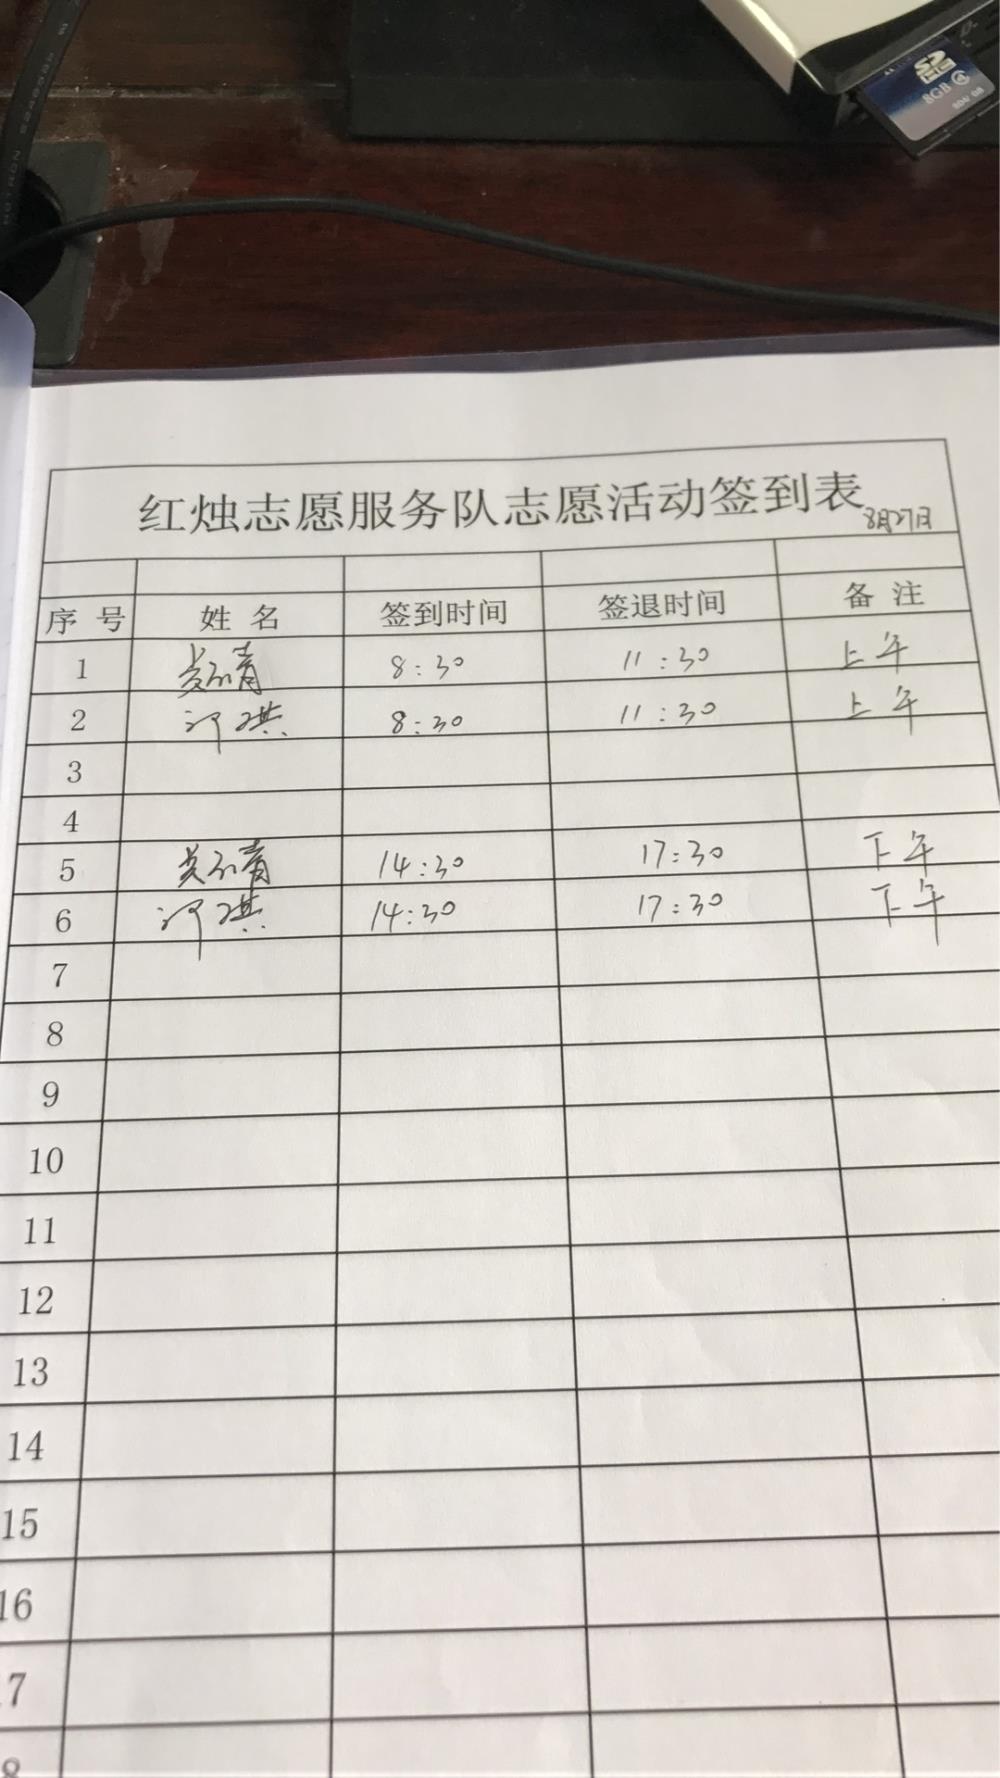 SD
HC
8GB 4
红烛志愿服务队志愿活动签到表
8月27日
序号 姓名 签到时间 签退时间 备注
1 8:30 11:30 上午
2 8:30 11:30 上午
3
4
5 14:30 17:30 下午
6 14:30 17:30 下午
7
8
9
10
11
12
13
14
15
16